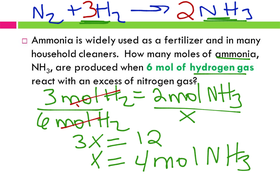 N₂ + 3H₂ → 2NH₃
Ammonia is widely used as a fertilizer and in many
household cleaners. How many moles of ammonia,
NH₃, are produced when 6 mol of hydrogen gas
react with an excess of nitrogen gas?
3 mol H₂ = 2 mol NH₃
6 mol H₂ x
3x = 12
x = 4 mol NH₃